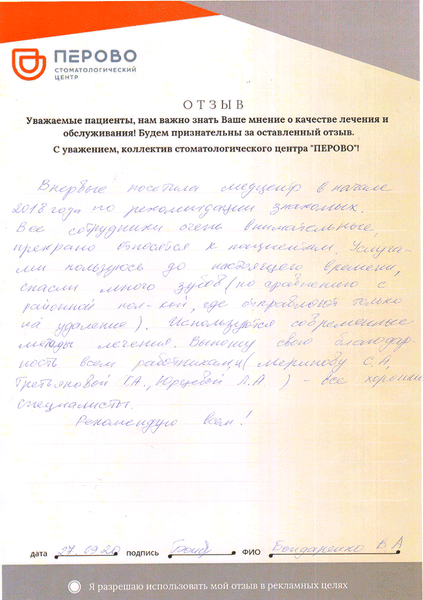 ПЕРОВО
СТОМАТОЛОГИЧЕСКИЙ
ЦЕНТР
ОТЗЫВ
Уважаемые пациенты, нам важно знать Ваше мнение о качестве лечения и
обслуживания! Будем признательны за оставленный отзыв.
С уважением, коллектив стоматологического центра "ПЕРОВО"!
Впервые посетила медцентр в начале
2018 года по рекомендации знакомых.
Все сотрудники очень внимательные,
прекрасно относятся к пациентам. Услуга-
ми пользуюсь до настоящего времени,
спасли много зубов (по сравнению с
районной пол-кой, где отправляют только
на удаление). Используются современные
методы лечения. Выношу свою благодар-
ность всем работникам (Меринову С.А,
Третьяковой Т.А., Л.А) - все хорошие
специалисты.
Рекомендую всем!
дата 27.09.20 подпись ФИО Бондаренко В А
Я разрешаю использовать мой отзыв в рекламных целях